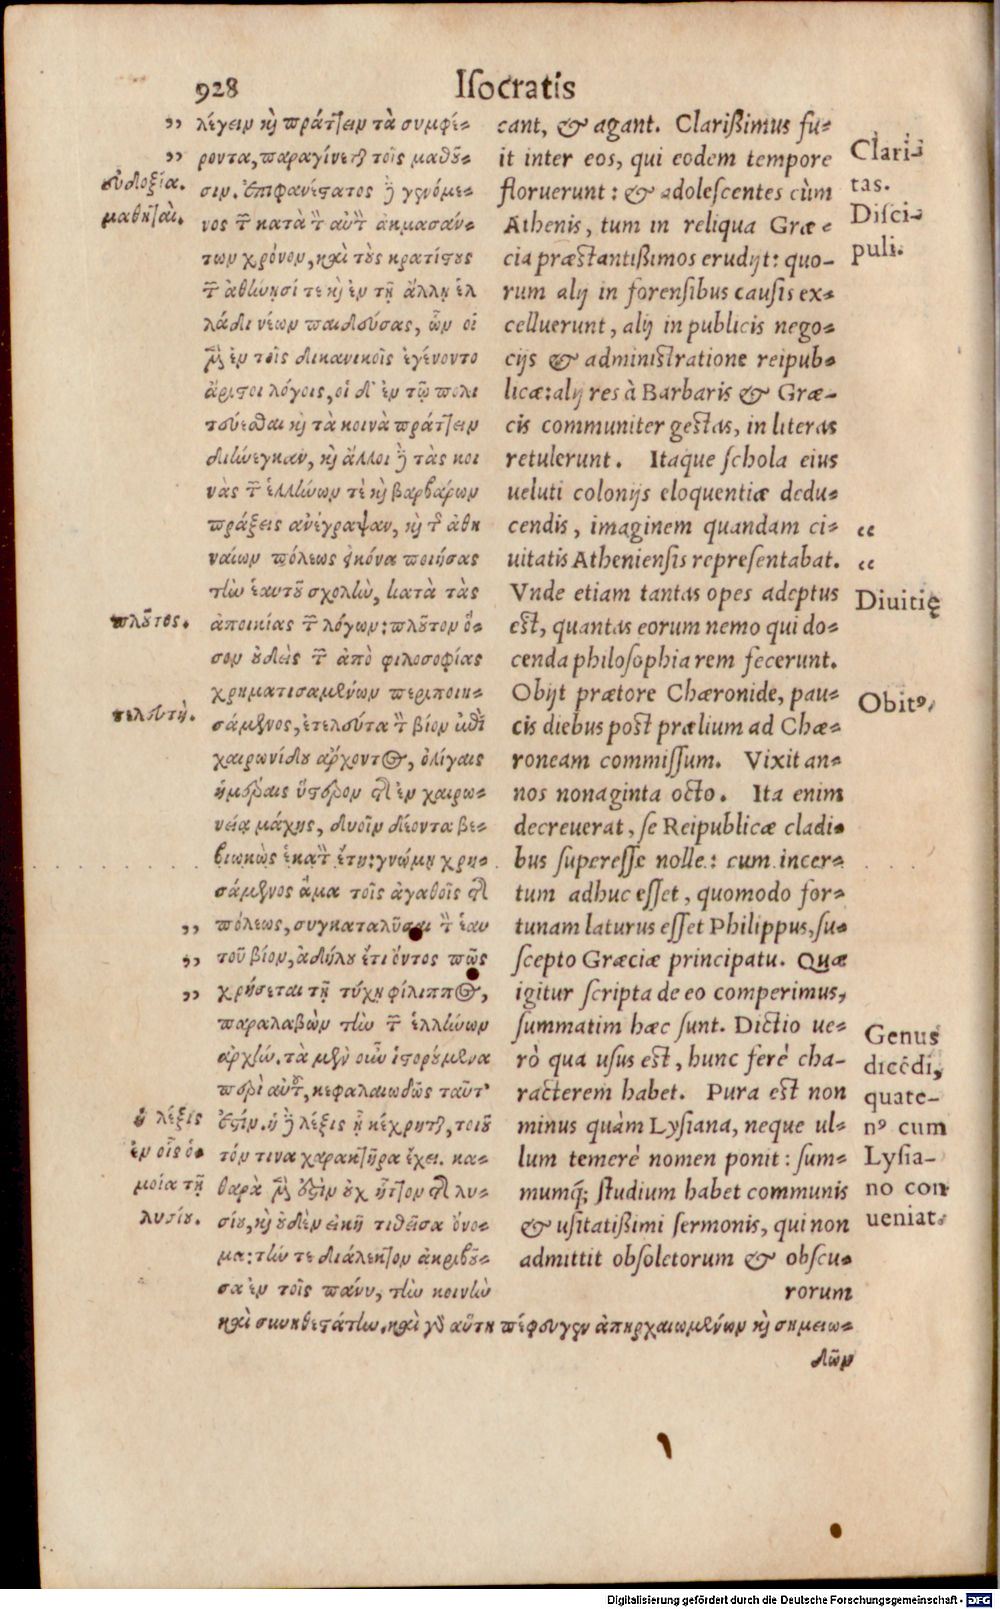 928
Iſocratis
λέγειν κὶ πράττειν τὰ συμφέ-
ροντα, παραγίνεται τοῖς μαθοῦ-
σιν. ἐπιφανέστατος δὲ γενόμε-
νος τῶν κατὰ τὸν αὐτὸν ἀκμασάν-
των χρόνον, καὶ τοὺς κρατίστους
τῶν ἀθήνησί τε κὶ ἐν τῇ ἄλλῃ ἑλ
λάδι νέων παιδεύσας, ὧν οἱ
μὲν ἐν τοῖς δικανικοῖς ἐγένοντο
ἄριστοι λόγοις, οἱ δ' ἐν τῷ πολι
τεύεσθαι κὶ τὰ κοινὰ πράττειν
διήνεγκαν, κὶ ἄλλοι δὲ τὰς κοι
νὰς τῶν ἑλλήνων τὲ κὶ βαρβάρων
πράξεις ἀνέγραψαν, κὶ τῆς ἀθη
ναίων πόλεως εἰκόνα ποιήσας
τὴν ἑαυτοῦ σχολὴν, κατὰ τὰς
ἀποικίας τῶν λόγων: πλοῦτον ὅ-
σον οὐδεὶς τῶν ἀπὸ φιλοσοφίας
χρηματισαμένων περιποιη-
σάμενος, ἐτελεύτα τὸν βίον ἐπὶ
χαιρωνίδου ἄρχοντος, ὀλίγαις
ἡμέραις ὕστερον τῆς ἐν χαιρω-
νείᾳ μάχης, δυοῖν δέοντα βε-
βιωκὼς ἑκατὸν ἔτη: γνώμῃ χρη-
σάμενος ἅμα τοῖς ἀγαθοῖς τῆς
πόλεως, συγκαταλῦσαι τὸν ἑαυ
τοῦ βίον, ἀδήλου ἔτι ὄντος πῶς
χρήσεται τῇ τύχῃ φίλιππος,
παραλαβὼν τὴν τῶν ἑλλήνων
ἀρχήν. τὰ μὲν οὖν ἱστορούμενα
περὶ αὐτοῦ, κεφαλαιωδῶς ταῦτ'
ἐστίν. ἡ δὲ λέξις ᾗ κέχρηται, τοιοῦ
τόν τινα χαρακτῆρα ἔχει. κα-
θαρὰ μὲν ἐστὶν οὐχ ἧττον τῆς λυ-
σίου, κὶ οὐδὲν εἰκῆ τιθεῖσα ὄνο-
μα: τήν τε διάλεκτον ἀκριβοῦ-
σα ἐν τοῖς πάνυ, τὴν κοινὴν
καὶ συνηθεστάτην. καὶ γὰρ αὕτη πέφευγεν ἀπηρχαιωμένων κὶ σημειω-
δῶν
εὐδοξία.
μαθηταὶ.
πλοῦτος.
τελευτή.
ἡ λέξις
ἐν οἷς ὁ-
μοία τῇ
λυσίου.
cant, & agant. Clarißimus fu-
it inter eos, qui eodem tempore
floruerunt: & adoleſcentes cùm
Athenis, tum in reliqua Græ-
cia præstantißimos erudijt: quo-
rum alij in forenſibus cauſis ex-
celluerunt, alij in publicis nego-
cijs & administratione reipub-
licæ: alij res à Barbaris & Græ-
cis communiter gestas, in literas
retulerunt. Itaque ſchola eius
ueluti colonijs eloquentiæ dedu-
cendis, imaginem quandam ci-
uitatis Athenienſis repreſentabat.
Vnde etiam tantas opes adeptus
est, quantas eorum nemo qui do-
cenda philoſophia rem fecerunt.
Obijt prætore Chæronide, pau-
cis diebus post prælium ad Chæ-
roneam commiſſum. Vixit an-
nos nonaginta octo. Ita enim
decreuerat, ſe Reipublicæ cladi-
bus ſupereſſe nolle: cum incer-
tum adhuc eſſet, quomodo for-
tunam laturus eſſet Philippus, ſu-
ſcepto Græciæ principatu. Quæ
igitur ſcripta de eo comperimus,
ſummatim hæc ſunt. Dictio ue-
rò qua uſus est, hunc ferè cha-
racterem habet. Pura est non
minus quàm Lyſiana, neque ul-
lum temerè nomen ponit: ſum-
mumq́; ſtudium habet communis
& uſitatißimi ſermonis, qui non
admittit obſoletorum & obſcu-
rorum
Clari-
tas.
Diſci-
puli.
Diuitię
Obitꝰ
Genus
dicẽdi,
quate-
nꝰ cum
Lyſia-
no con
ueniat.
Digitalisierung gefördert durch die Deutsche Forschungsgemeinschaft - DFG